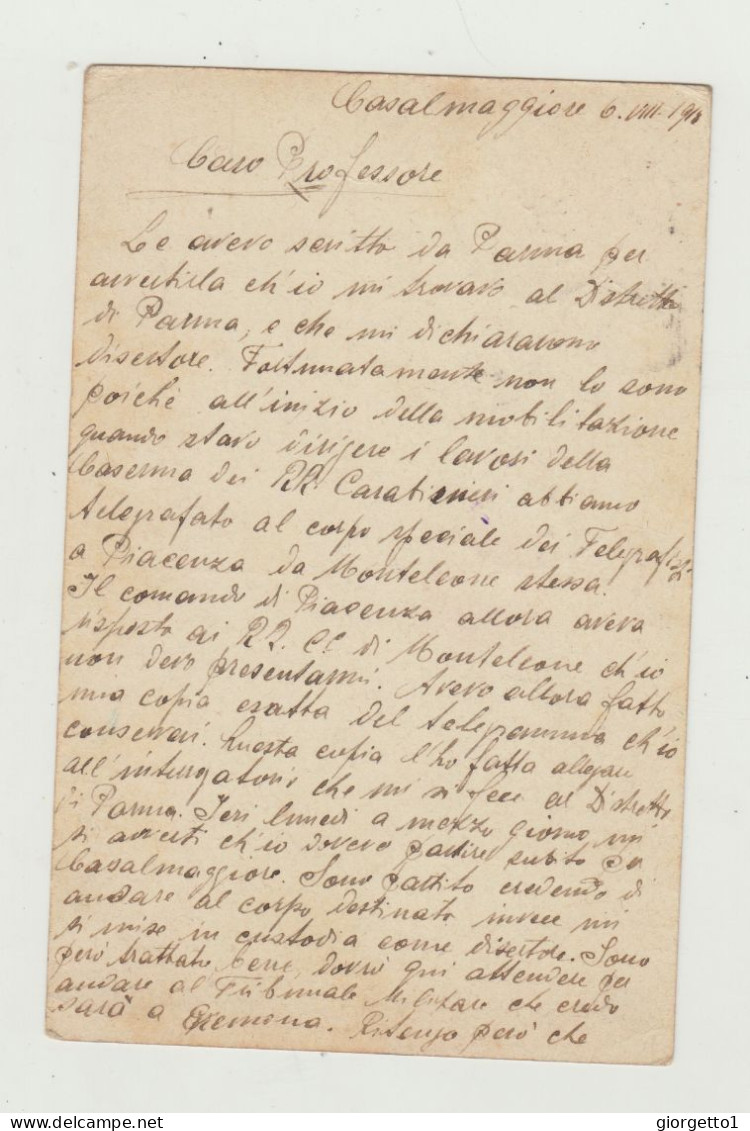 Casalmaggiore 6. VIII. 191
Caro Professore
Le avevo scritto da Parma per
avvertirla ch'io mi trovavo al Distretto
di Parma, e che mi dichiararono
disertore. Fortunatamente non lo sono
poiché all'inizio della mobilitazione
quando stavo dirigere i lavori della
Caserma dei RR. Carabinieri abbiamo
telegrafato al corpo speciale dei Telegrafisti
a Piacenza da Monteleone stessa.
Il comando di Piacenza allora aveva
risposto ai RR. CC. di Monteleone ch'io
non devo presentarmi. Avevo allora fatto
una copia esatta del telegramma ch'io
conservai. Questa copia l'ho fatta allegare
all'interrogatorio che mi si fece al Distretto
di Parma. Ieri lunedì a mezzo giorno mi
si avvertì ch'io dovevo partire subito per
Casalmaggiore. Sono partito credendo di
andare al corpo destinato invece mi
si mise in custodia come disertore. Sono
però trattato bene, dovrò qui attendere per
andare al Tribunale Militare che credo
sarà a Cremona. Ritengo però che
giorgetto1